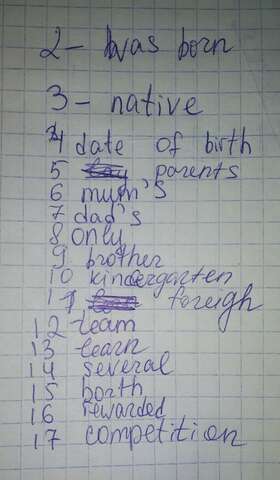 2 - was born
3 - native
4 date of birth
5 parents
6 mum's
7 dad's
8 only
9 brother
10 kindergarten
11 foreigh
12 team
13 learn
14 several
15 borth
16 rewarded
17 competition